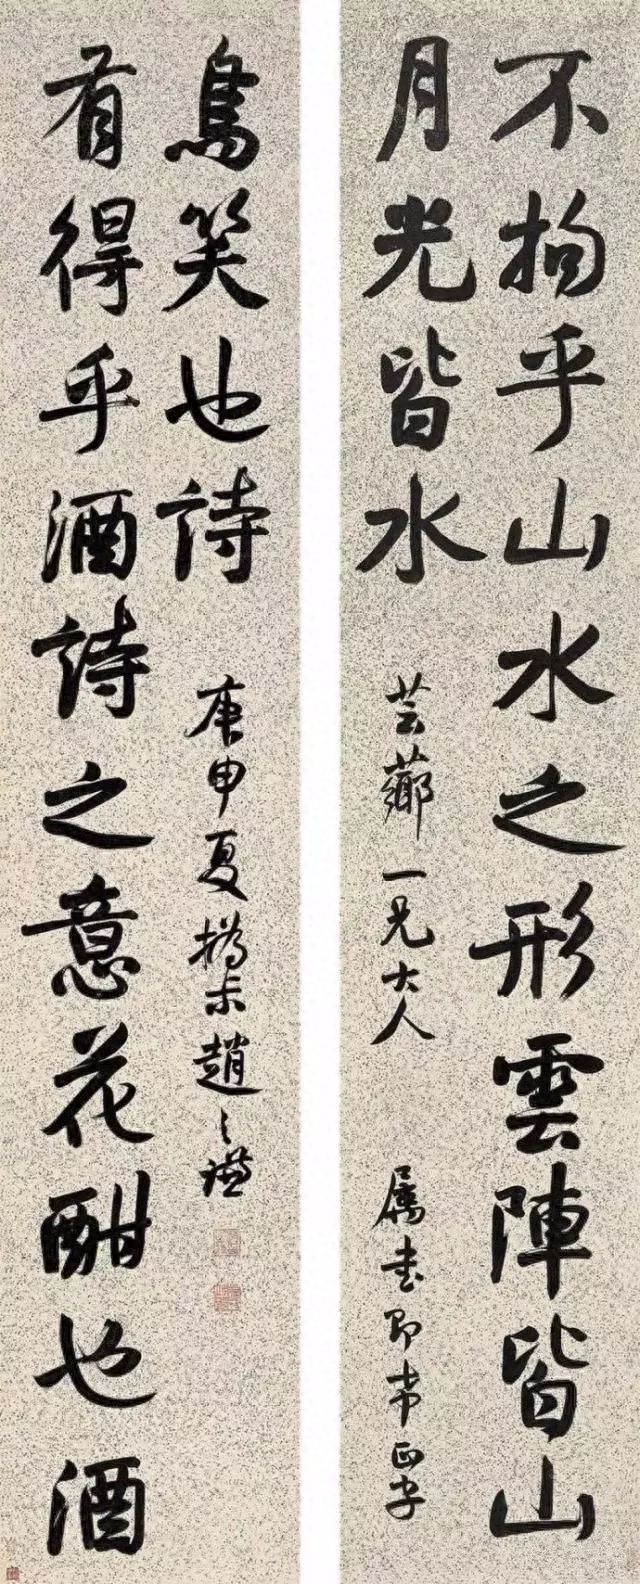 不拘乎山水之形雲陣皆山
月光皆水
芸薌一兄大人
属書即希正字
有得乎酒詩之意花酣也酒
鳥笑也詩
庚申夏撝尗趙之謙